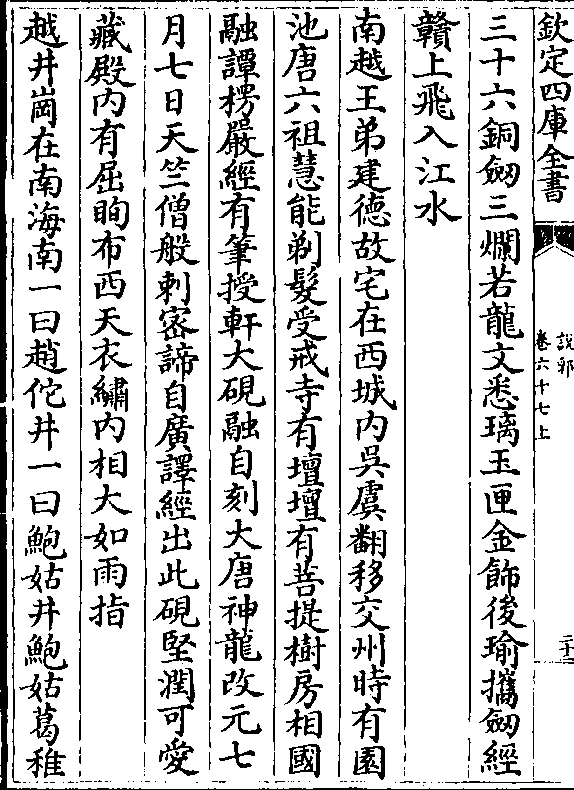 欽定四庫全書
說郛
卷六十七上
三十六銅劔三爛若龍文悉璃玉匣金飾後瑜攜劔經
贛上飛入江水
南越王弟建德故宅在西城内吳虞翻移交州時有園
池唐六祖慧能剃髮受戒寺有壇壇有菩提樹房相國
融譚楞嚴經有筆授軒大硯融自刻大唐神龍改元七
月七日天竺僧般刺宻諦自廣譯經出此硯堅潤可愛
藏殿内有屈眴布西天衣繡内相大如雨指
越井崗在南海南一曰趙佗井一曰鮑姑井鮑姑葛稚